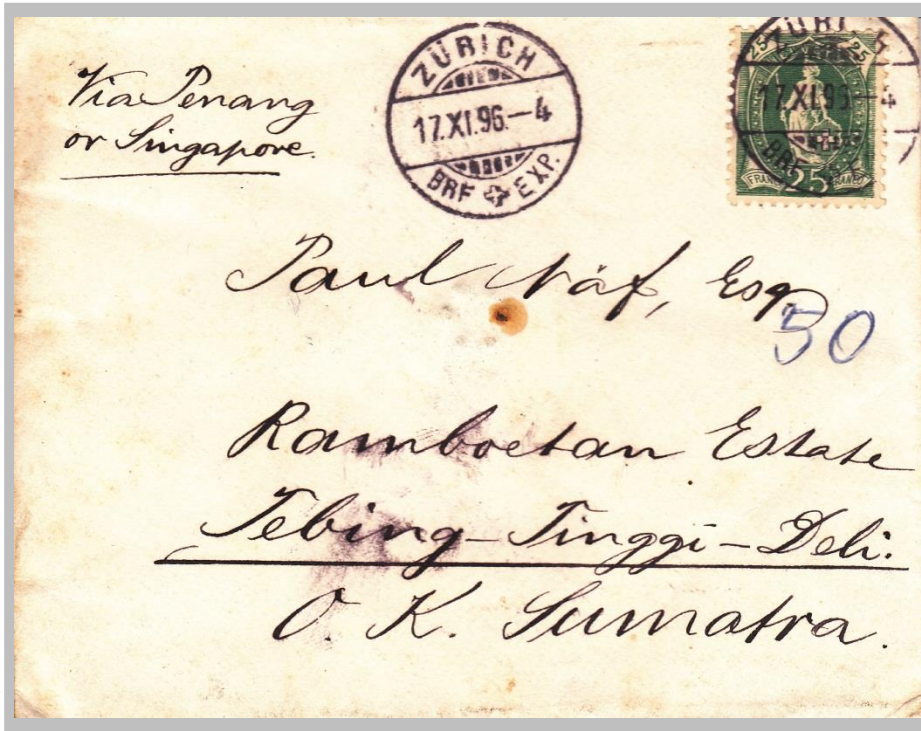 Via Penang
or Singapore.
ZÜRICH
17.XI.96.–4
BRF EXP.
25 25
ZÜRICH
17.XI.96–4
BRF
FRANCO 25 FRANCO
Paul Näf, Esq.
50
Ramboetan Estate
Tebing-Tinggi-Deli.
O. K. Sumatra.